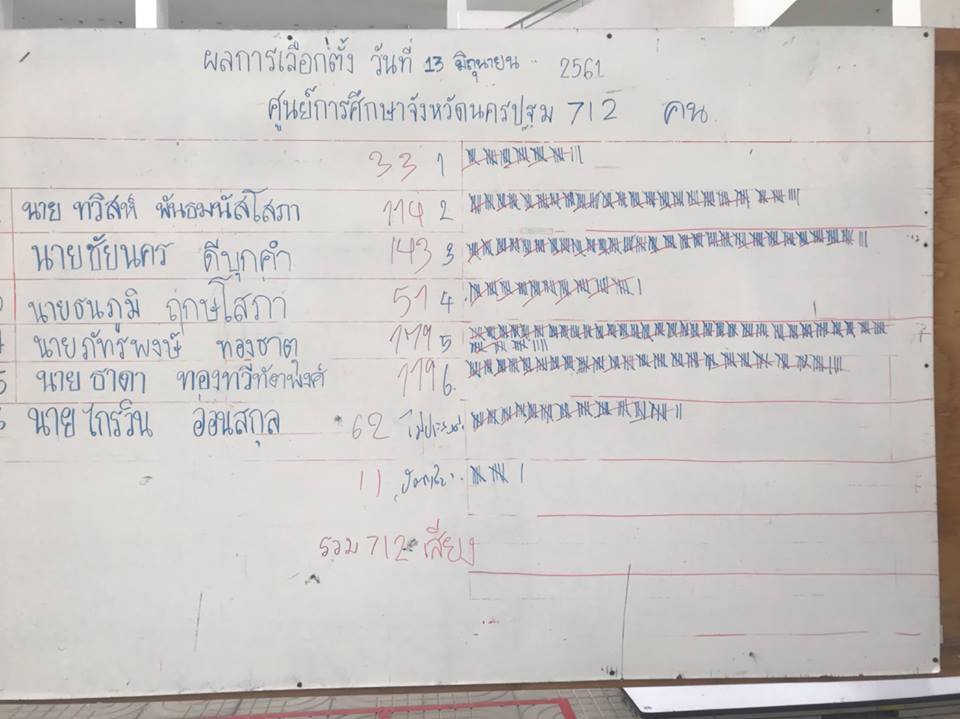 ผลการเลือกตั้ง วันที่ 13 มิถุนายน 2561
ศูนย์การศึกษาจังหวัดนครปฐม 712 คน
33 1
นาย ทวิสห์ พันธมนัสโสภา 114 2
นายชัยนคร ดีบุกคำ 143 3
นายธนภูมิ ฤกษ์โสภา 51 4
นายภัทรพงษ์ ทองธาตุ 179 5
นาย ธาดา ทองทวีทัตพงศ์ 119 6.
นายไกรวิน อ่อนสกุล 62
11
รวม 712 เสียง